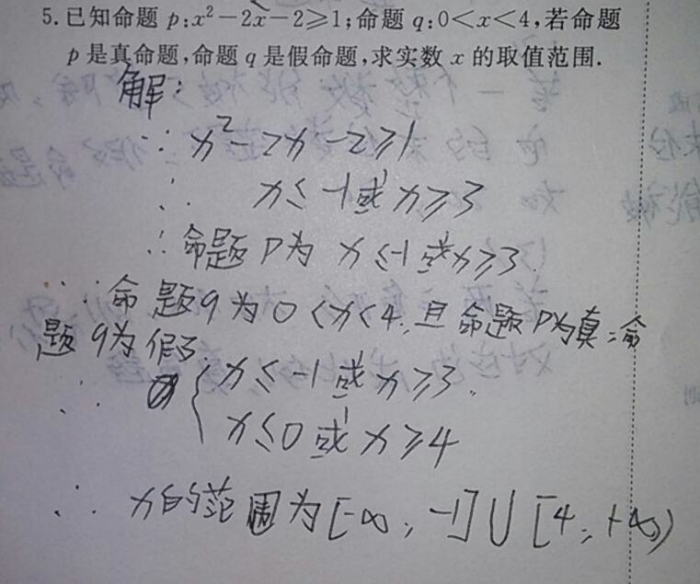 5.已知命题 p:x²-2x-2≥1;命题 q:0<x<4,若命题
p 是真命题,命题 q 是假命题,求实数 x 的取值范围.
解:
∵ x²-2x-2≥1
∴ x≤-1或x≥3
∴命题P为 x≤-1或x≥3
∵命题q为0<x<4,且命题P为真,命
题q为假
∴ { x≤-1或x≥3,
x≤0或x≥4
∴ x的范围为[-∞,-1]∪[4,+∞)